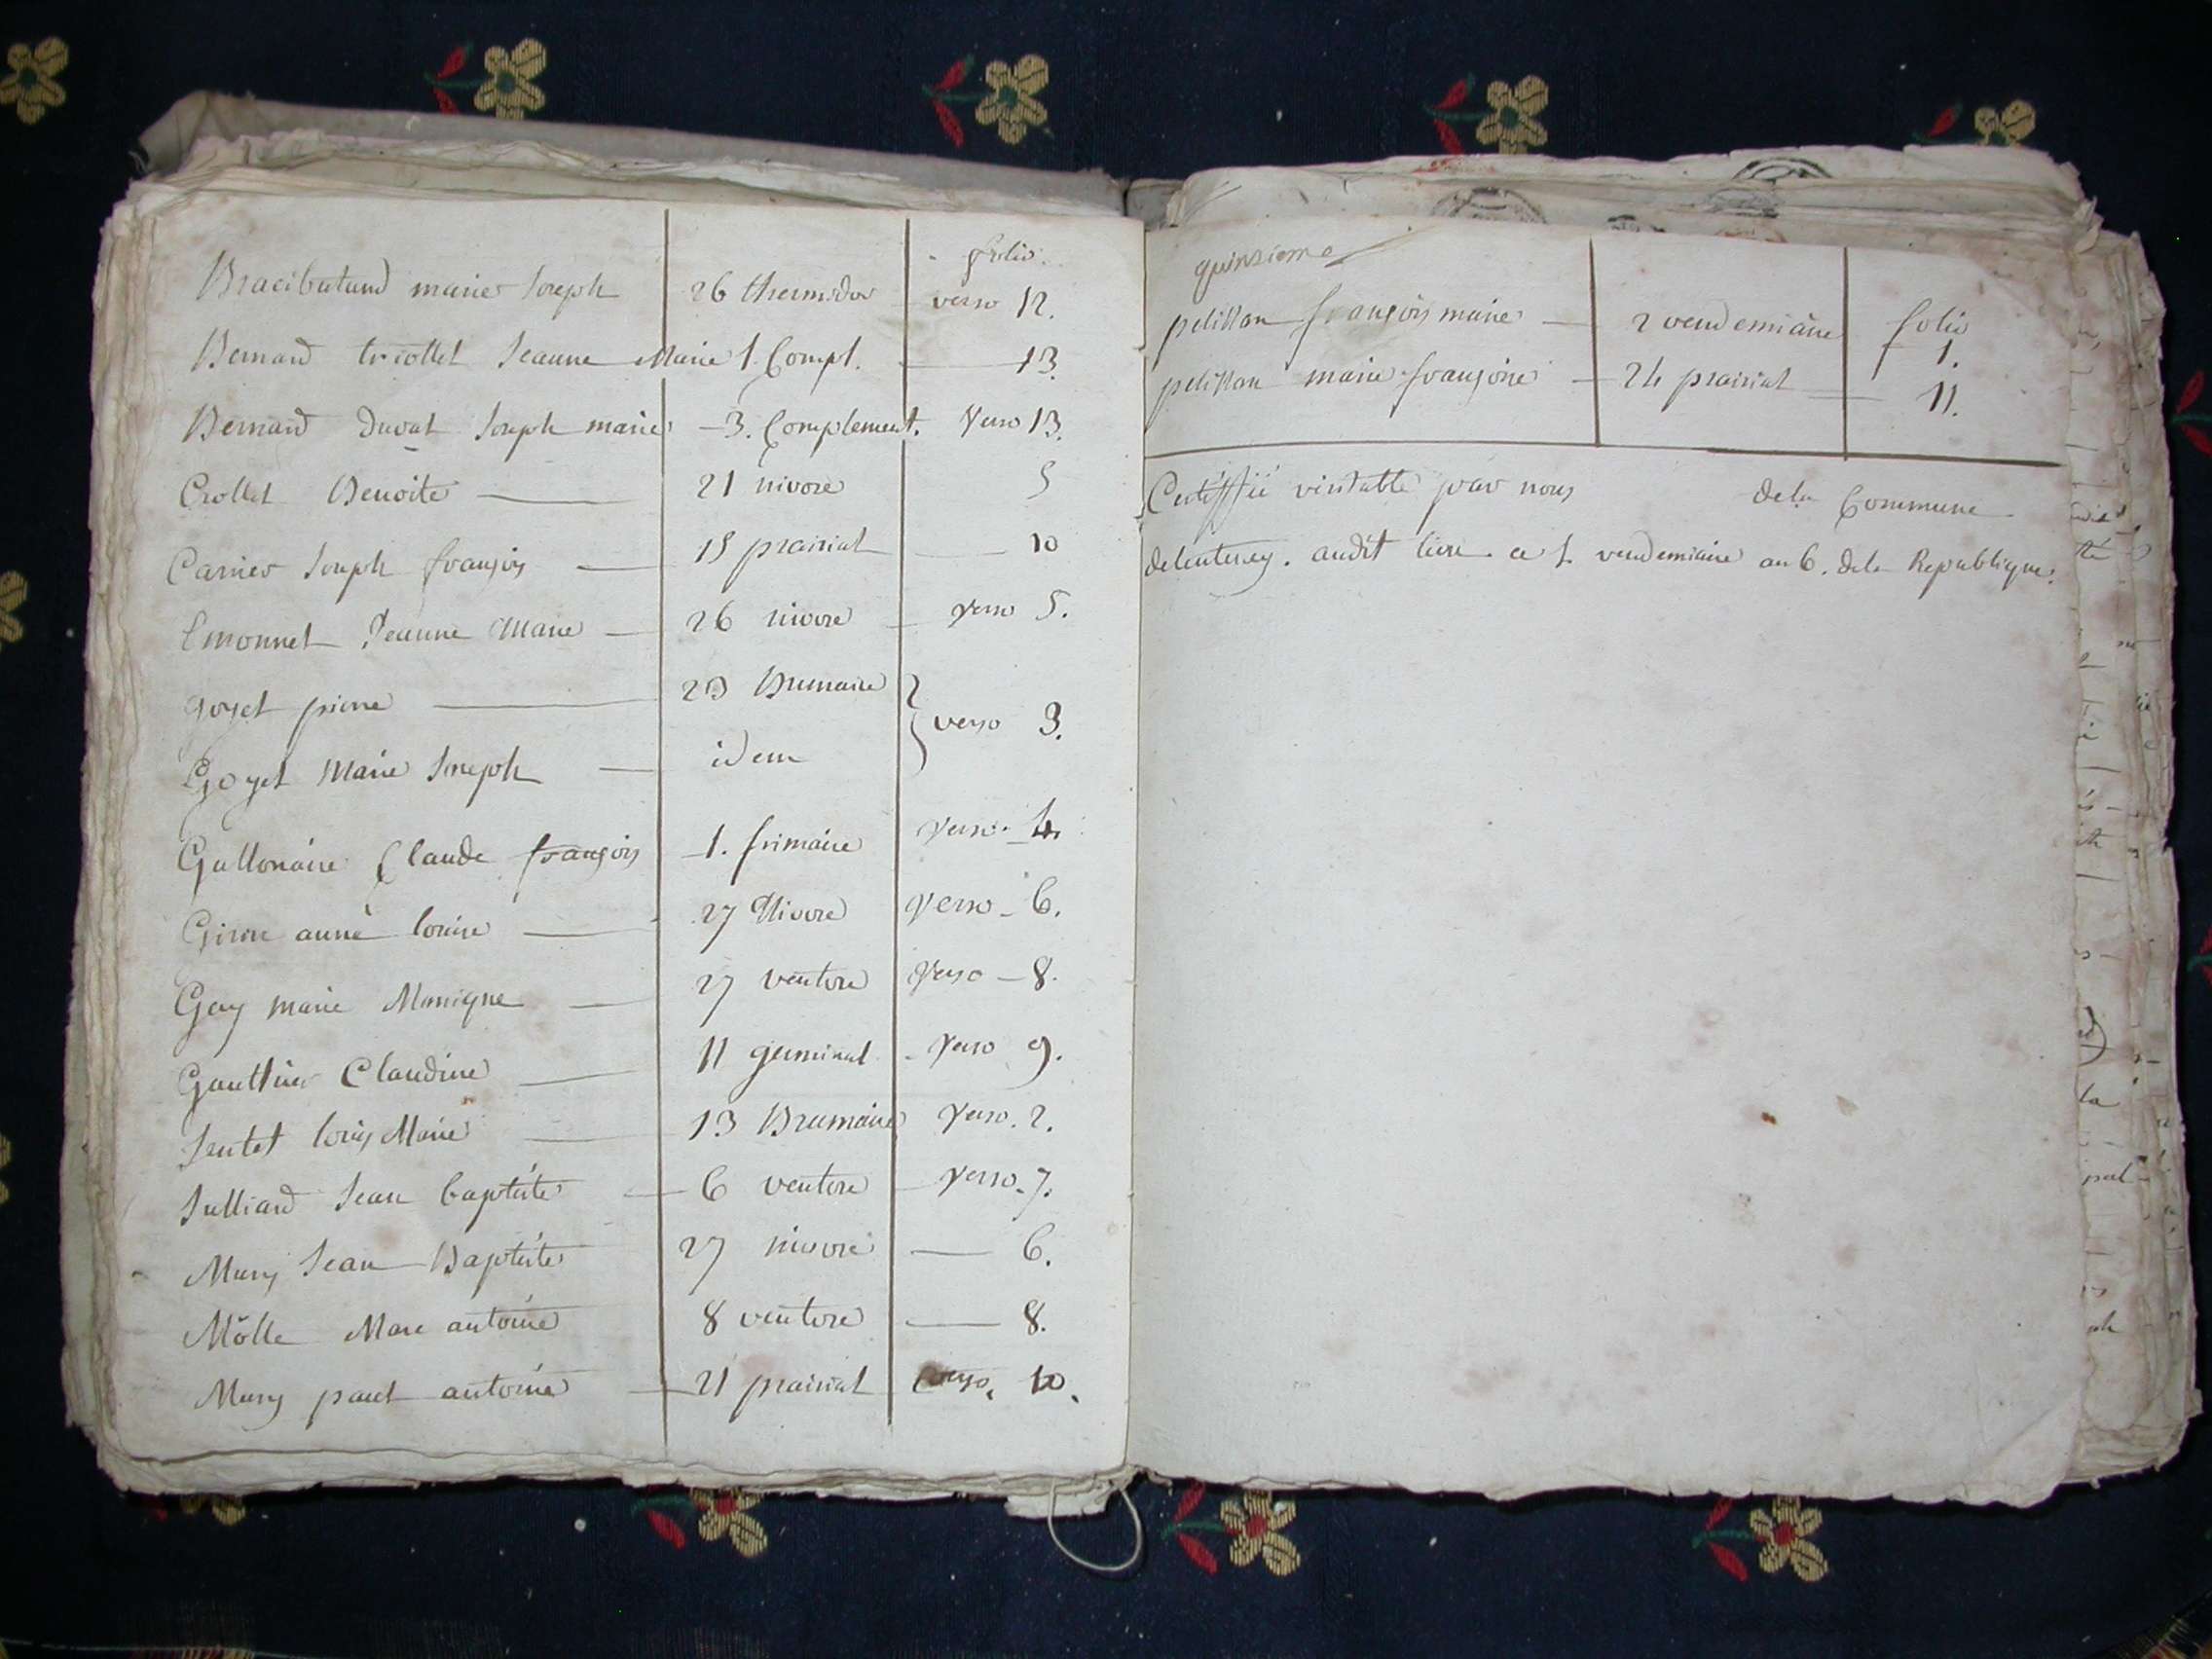 folio.
Bracibatund marie Joseph 26 thermidor verso 12.
Bernard tricollet Jeanne Marie 1. Compl. 13.
Bernard Duvat Joseph marie 3. Complement. verso 13.
Crollet Benoite 21 nivose 5
Carrier Joseph françois 15 prairial 10
Emonnet Jeanne Marie 26 nivose verso 5.
goyet pierre 23 Brumaire
verso 3.
Goyet Marie Joseph idem
Gallonaire Claude françois 1. frimaire verso 4.
anne louise 27 Nivose verso 6.
Gay marie Monique 27 ventose verso 8.
Gauthier Claudine 11 germinal verso 9.
louis Marie 13 Brumaire verso. 2.
Julliard Jean baptiste 6 ventose verso. 7.
Mury Jean Baptiste 27 nivose 6.
Molle Marc antoine 8 ventose 8.
Mury paul antoine 21 prairial verso. 10.
quinsieme
pelissan françois marie 2 vendemiaire folio 1.
pelissan marie françoise 24 prairial 11.
Certiffié viritable par nous de la Commune
delentenay. audit lieu ce 1. vendemiaire an 6. dela Republique.